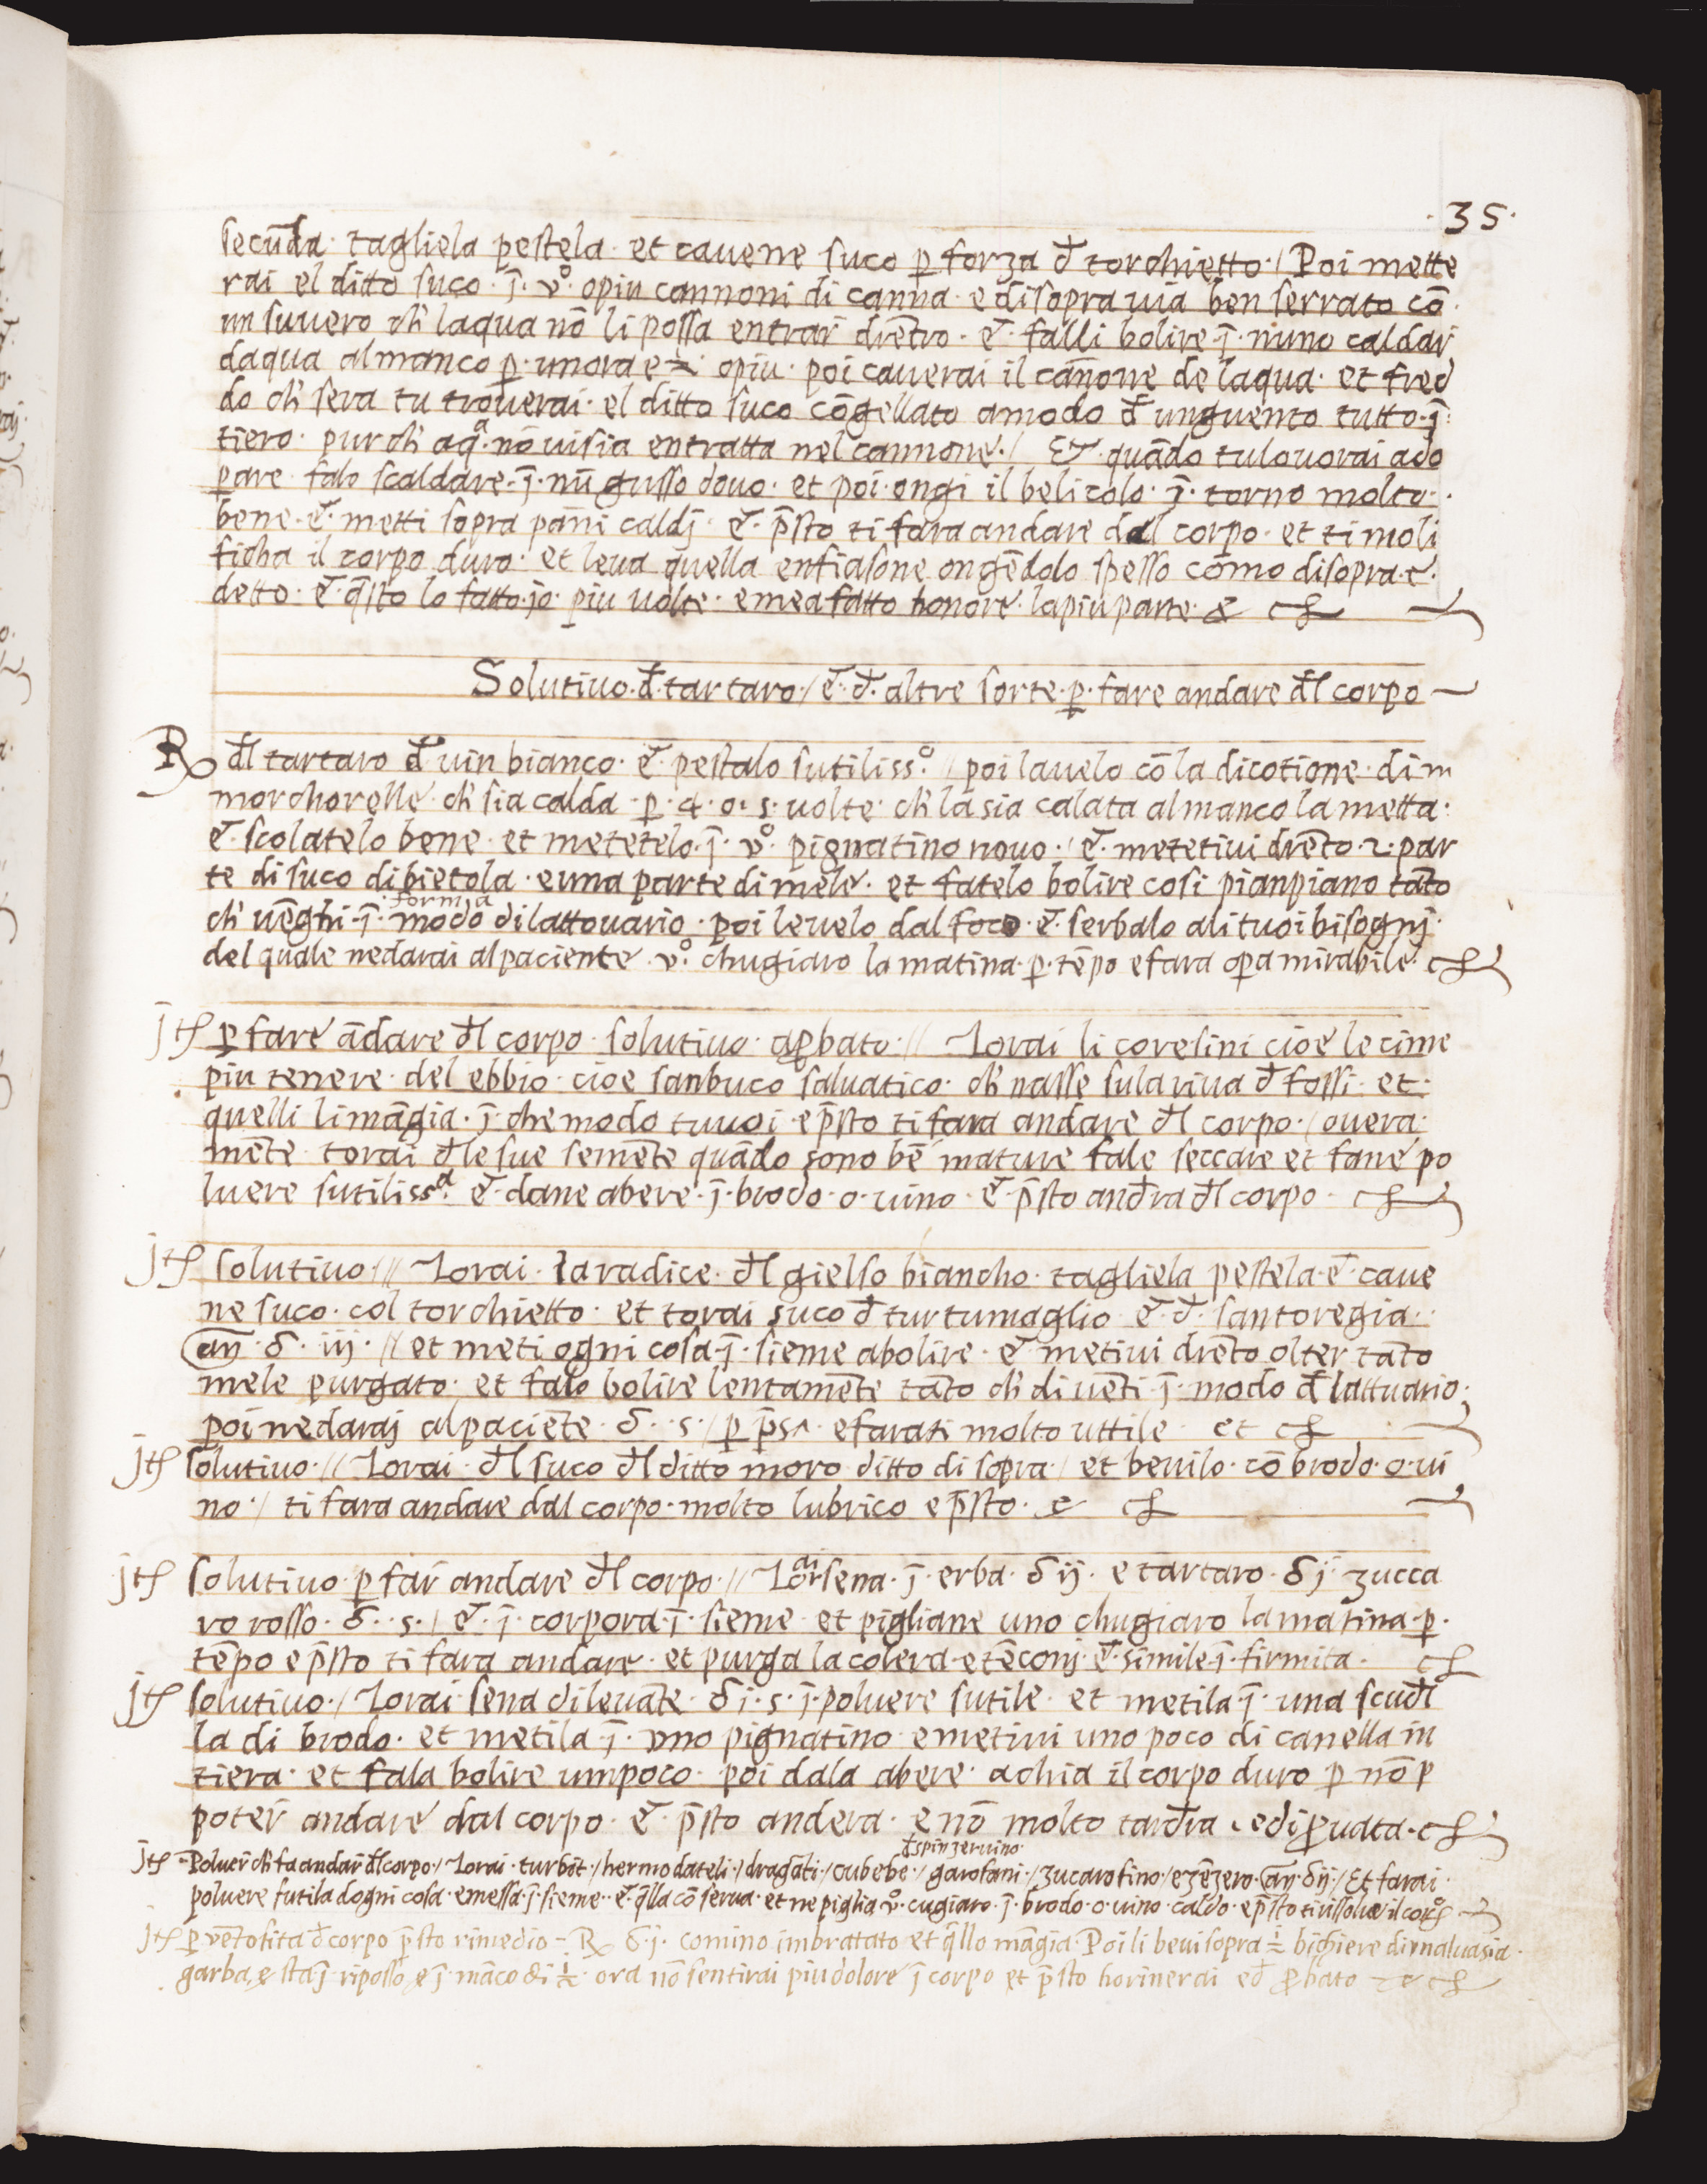 ·35·
secūda· tagliela pestela· et cauene suco p̱ forza đ torchietto·/ Poi mette
rai el ditto suco· j̄· vº· opiu cannoni di canna· e disopra uia ben serrato cō·
un suuero ch̄ laqua nō li possa entrar̄ drēto· et· falli bolire· j̄· nuno caldar̄
daqua almanco p̱· unora e ½· opiu· poi cauerai il cānone de laqua· et fred
do ch̄ sera tu trouerai· el ditto suco cōgellato amodo đ unguento tutto· j̄·
tiero· pur ch̄ aqª· nō uisia entratta nel cannone·/ Et· quādo tulouorai ado
pare· falo scaldare· j̄· nū gusso douo· et poi· ongi il belicolo· j̄· torno molto·
bene· et· metti sopra pāni caldj· et· p̄sto ti fara andare dal corpo· et ti moli
ficha il corpo duro· et leua quella enfiasone ongēdolo spesso como disopra· e·
detto· et· q̄sto lo fatto· jo· piu uolte· e mea fatto honore· lapiu parte· &
Solutiuo· đ· tartaro·/ et· đ· altre sorte· p̱· fare andare đl corpo
℞ đl tartaro đ uin bianco· et· pestalo sutilissº· // poi lauelo cō la dicotione· di m
morchorelle· ch̄ sia calda· p̱· 4· o· 5· uolte· ch̄ la sia calata almanco la metta·
et· scolatelo bene· et metetelo· j̄· vº· pignatino nouo·/ et· metetiui drēto· 2· par
te di suco di bietola· e una parte di mele· et fatelo bolire cosi pianpiano tāto
ch̄ uēghi· j̄· modo formja di lattouario· poi leuelo dal foco· et· serbalo ali tuoi bisognj·
del quale nedarai al paciente· vº· chugiaro la matina· p̱· tēpo e fara op̱a mirabile·
jtē p̱ fare ādare đl corpo· solutiuo· ap̱bato· // Torai li coresini cioe le cime
piu tenere· del ebbio· cioe sanbuco saluatico· ch̄ nasse sula riua đ fossi· et·
quelli li māgia· j̄· che modo tuuoi· e p̄sto ti fara andare đl corpo·/ ouera·
mēte· torai đ le sue semēte quādo sono bē mature fale seccare et fane po
luere sutilissª· et· dane abere· j̄· brodo· o· uino· et· p̄sto anđra đl corpo·
jtē solutiuo // Torai· la radice· đl gielso biancho· tagliela pestela· et· caue
ne suco· col torchietto· et torai suco đ turtumaglio et· đ· santoregia·
añ· δ· iij· // et meti ogni cosa· j̄· sieme abolire· et metiui drēto olter tāto
mele purgato· et falo bolire lentamēte tāto ch̄ diuēti· j̄· modo đ lattuario·
poi nedaraj al paciēte· δ· s·/ p̱ p̄sª· e farati molto uttile· et
jtē solutiuo· // Torai· đl suco đl ditto moro ditto di sopra·/ et beuilo· cō brodo· o· ui
no·/ ti fara andare dal corpo· molto lubrico e p̄sto· et
jtē solutiuo· p̱ far̄ andare đl corpo· // Torai sena· j̄· erba· δ ij· e tartaro· δ j· zucca
ro rosso· δ· s·/ et· j̄· corpora· j̄· sieme· et pigliane uno chugiaro la matina· p̱·
tēpo e p̄sto ti fara andare· et purga la colera· e tēconj· et· simile· j̄· firmita·
jtē solutiuo·/ Torai sena di leuāte· δ i· s· j̄· poluere sutile· et metila· j̄· una scuđl
la di brodo· et metila· j̄· uno pignatino· e metiui uno poco di canella in
tiera· et fala bolire umpoco· poi dala abere· a chia il corpo duro p̱ nō p
poter̄ andare dal corpo· et· p̄sto andera· e nō molto tarđra· e di p̱uata·
jtē Poluer̄ ch̄ fa andar̄ đl corpo·/ Torai· turbit·/ hermodateli·/ dragāti·/ cubebe·/ đspinzeruino garofani·/ zucaro fino·/ e zēzero· añ· δ ij·/ Et farai·
poluere sutila dogni cosa· e messa· j̄· sieme· et· q̄lla cō serua· et ne piglia vº· cugiaro· j̄· brodo· o· uino· caldo· e p̄sto ti issolue il corpº
jtē p̱ vētosita đ corpo p̄sto rimedio - ℞ δ· j· comino imbrattato et q̄llo māgia· Poi li beui sopra ½ bichiere di maluasia·
garba, e sta j̄ riposso, e j̄ māco di ½· ora nō sentirai piu dolore j̄ corpo et p̄sto horinerai ed p̱bato